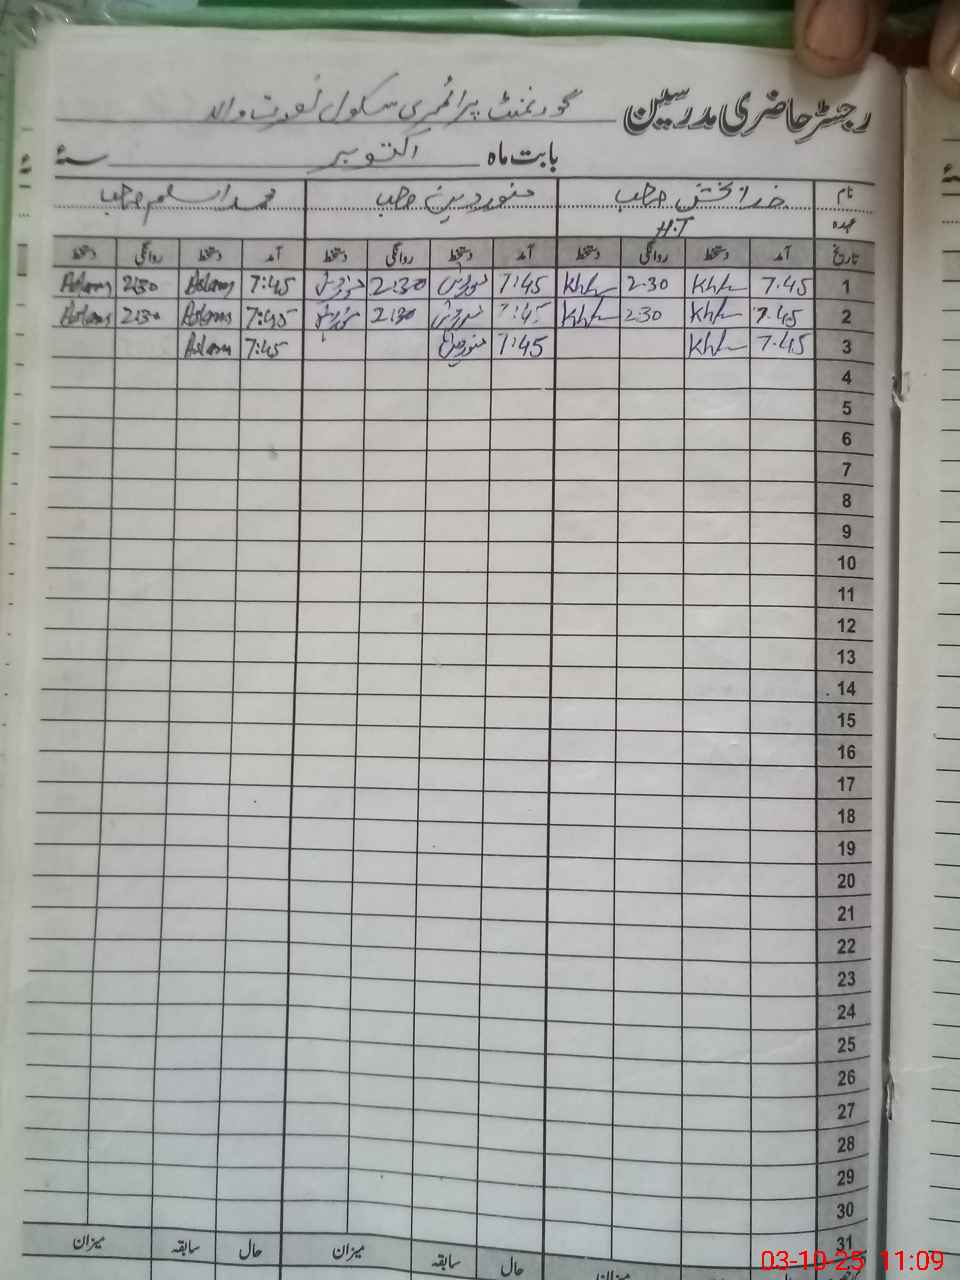 رجسٹر حاضری مدرسین گورنمنٹ پرائمری سکول
بابت ماہ اکتوبر سنہ
نام خدا بخش صاحب منور دین صاحب محمد اسلم صاحب
عہدہ H.T
تاریخ آمد دستخط روانگی دستخط آمد دستخط روانگی دستخط آمد دستخط روانگی دستخط
1 7.45 2-30 7:45 منوردین 2:30 منوردین 7:45 Aslam 2:30 Aslam
2 7.45 230 7:45 منوردین 2:30 منوردین 7:45 Aslam 2:30 Aslam
3 7.45 7:45 منوردین 7:45 Aslam
4
5
6
7
8
9
10
11
12
13
14
15
16
17
18
19
20
21
22
23
24
25
26
27
28
29
30
31
حال سابقہ میزان حال سابقہ میزان
03-10-25 11:09